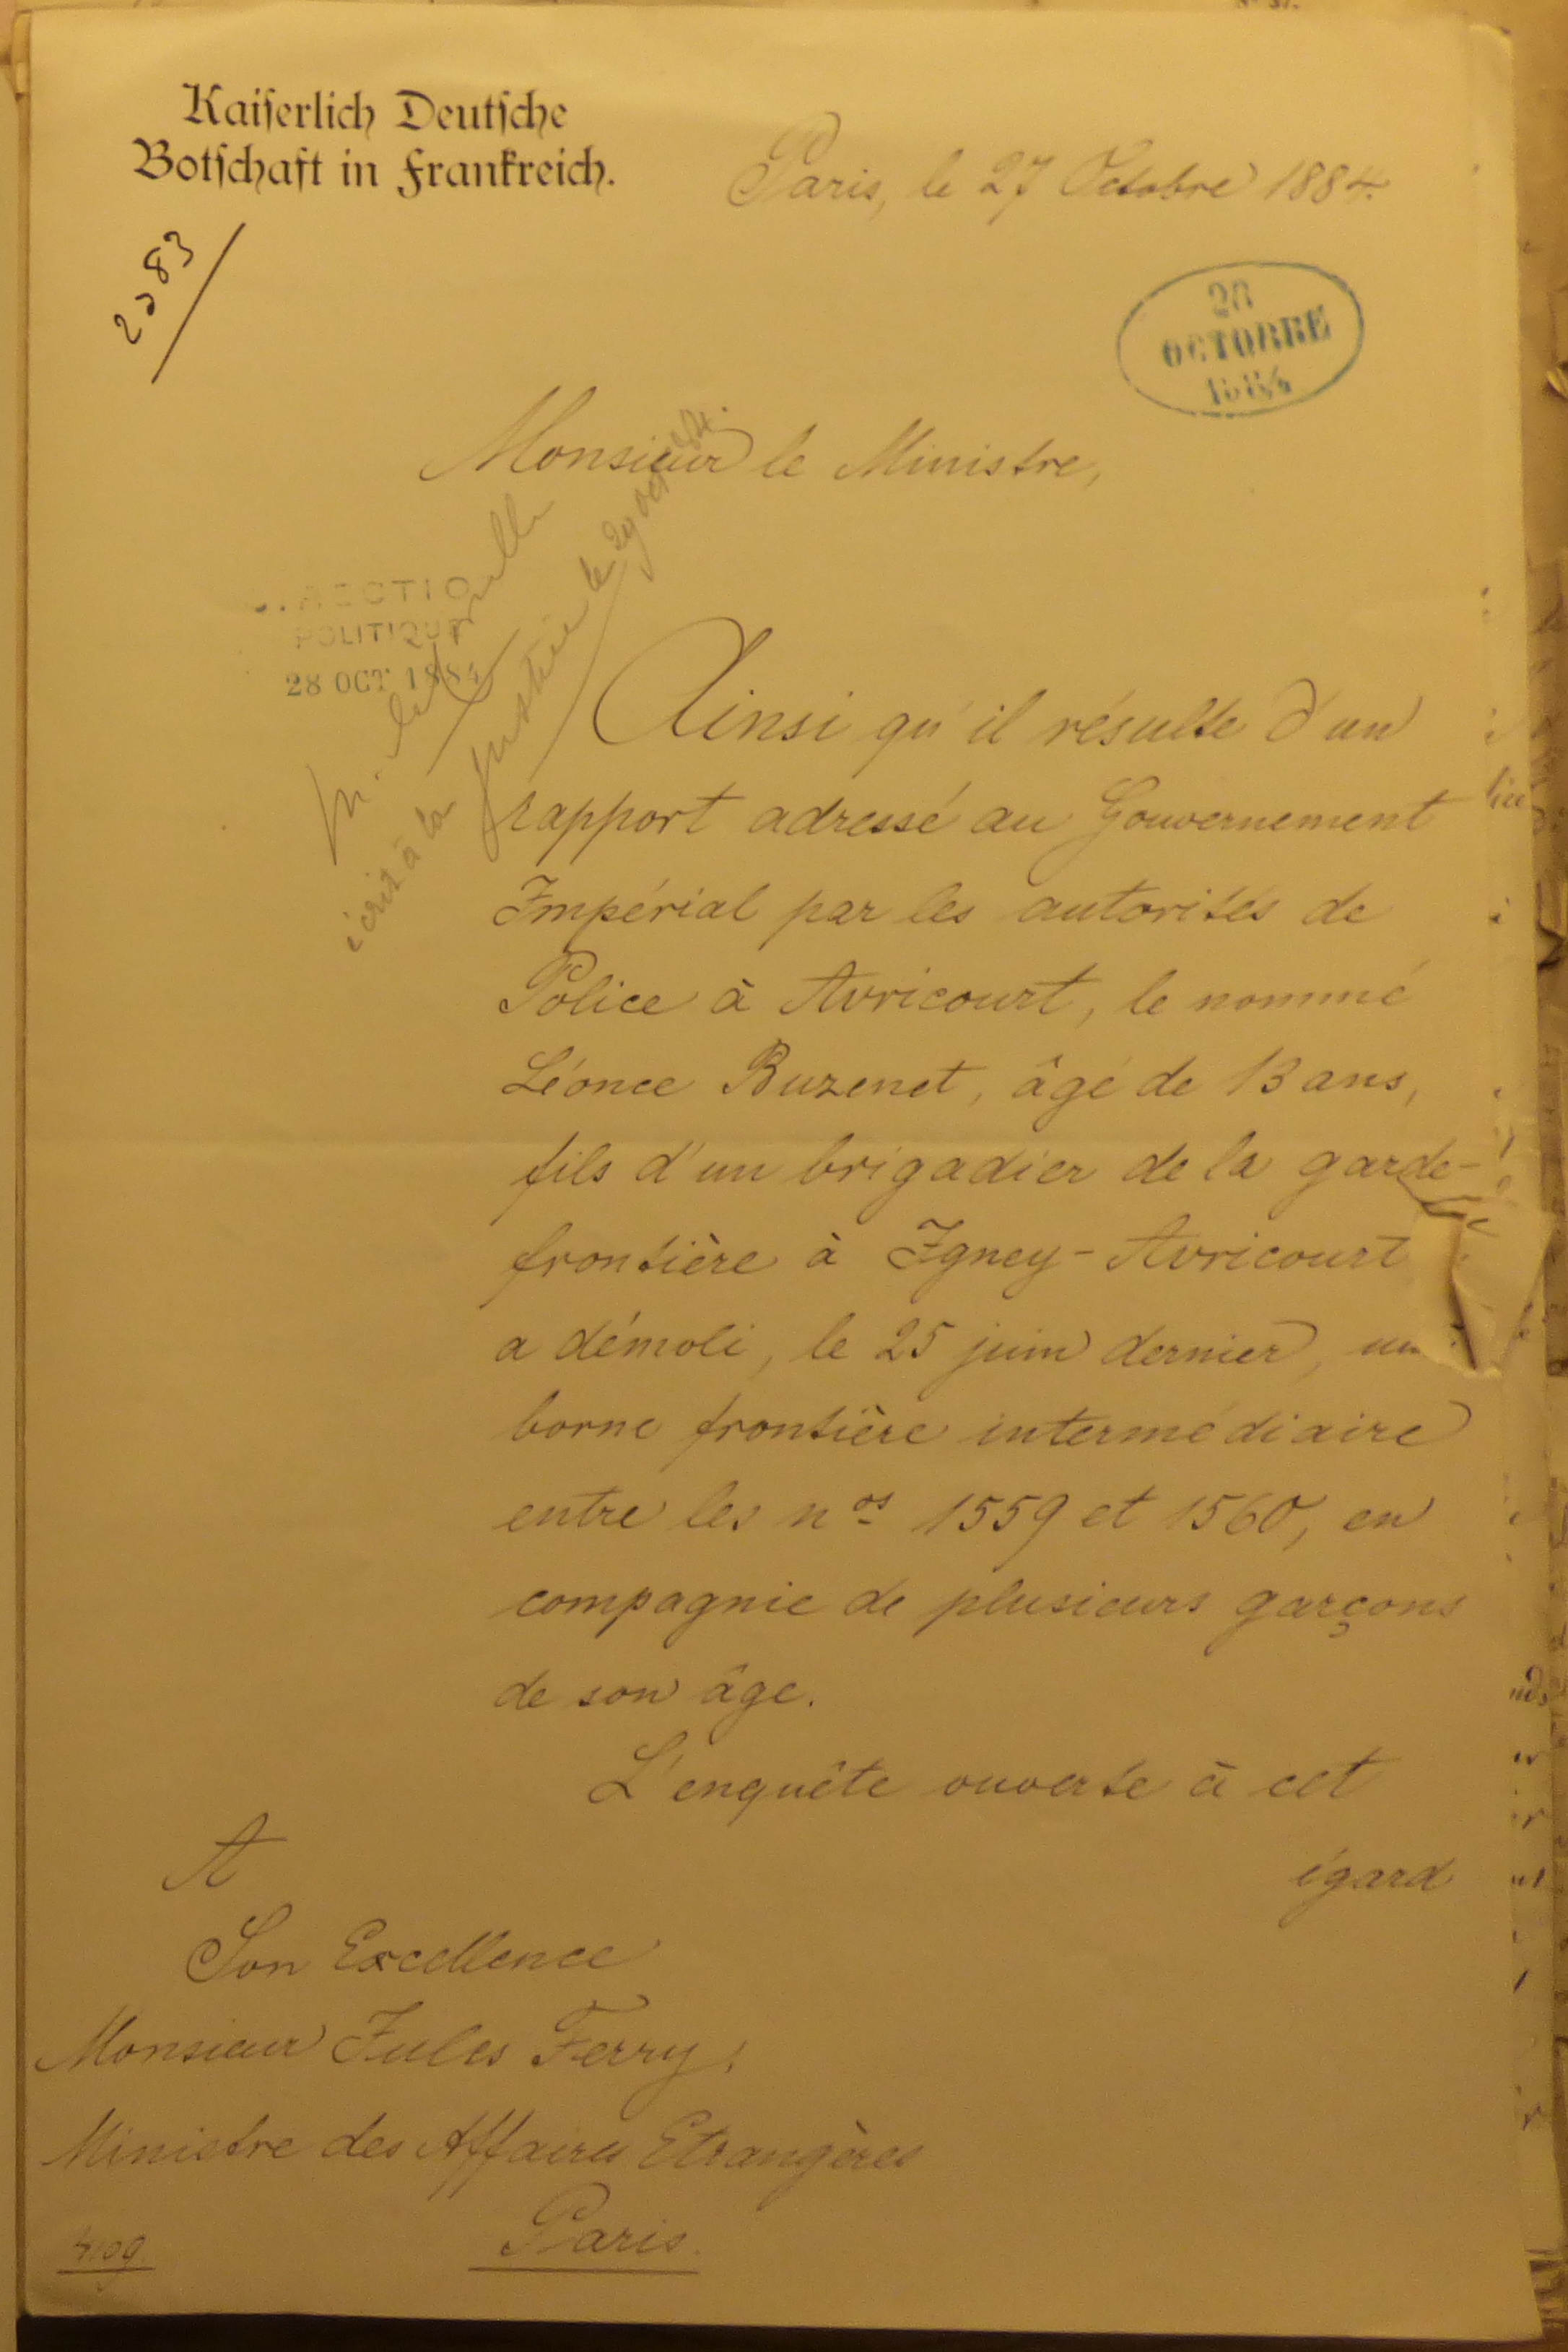 Kaiserlich Deutsche
Botschaft in Frankreich.
Paris, le 27 Octobre 1884.
2583
28
OCTOBRE
1884
Monsieur le Ministre,
POLITIQUE
28 OCT 1884
écrit à la Justice le 29 oct 84.
Ainsi qu'il résulte d'un
rapport adressé au Gouvernement
Impérial par les autorités de
Police à Avricourt, le nommé
Léonce Buzenet, âgé de 13 ans,
fils d'un brigadier de la garde-
frontière à Igney-Avricourt
a démoli, le 25 juin dernier,
borne frontière intermédiaire
entre les nos 1559 et 1560, en
compagnie de plusieurs garçons
de son âge.
L'enquête ouverte à cet
égard
A
Son Excellence
Monsieur Jules Ferry,
Ministre des Affaires Etrangères
Paris.